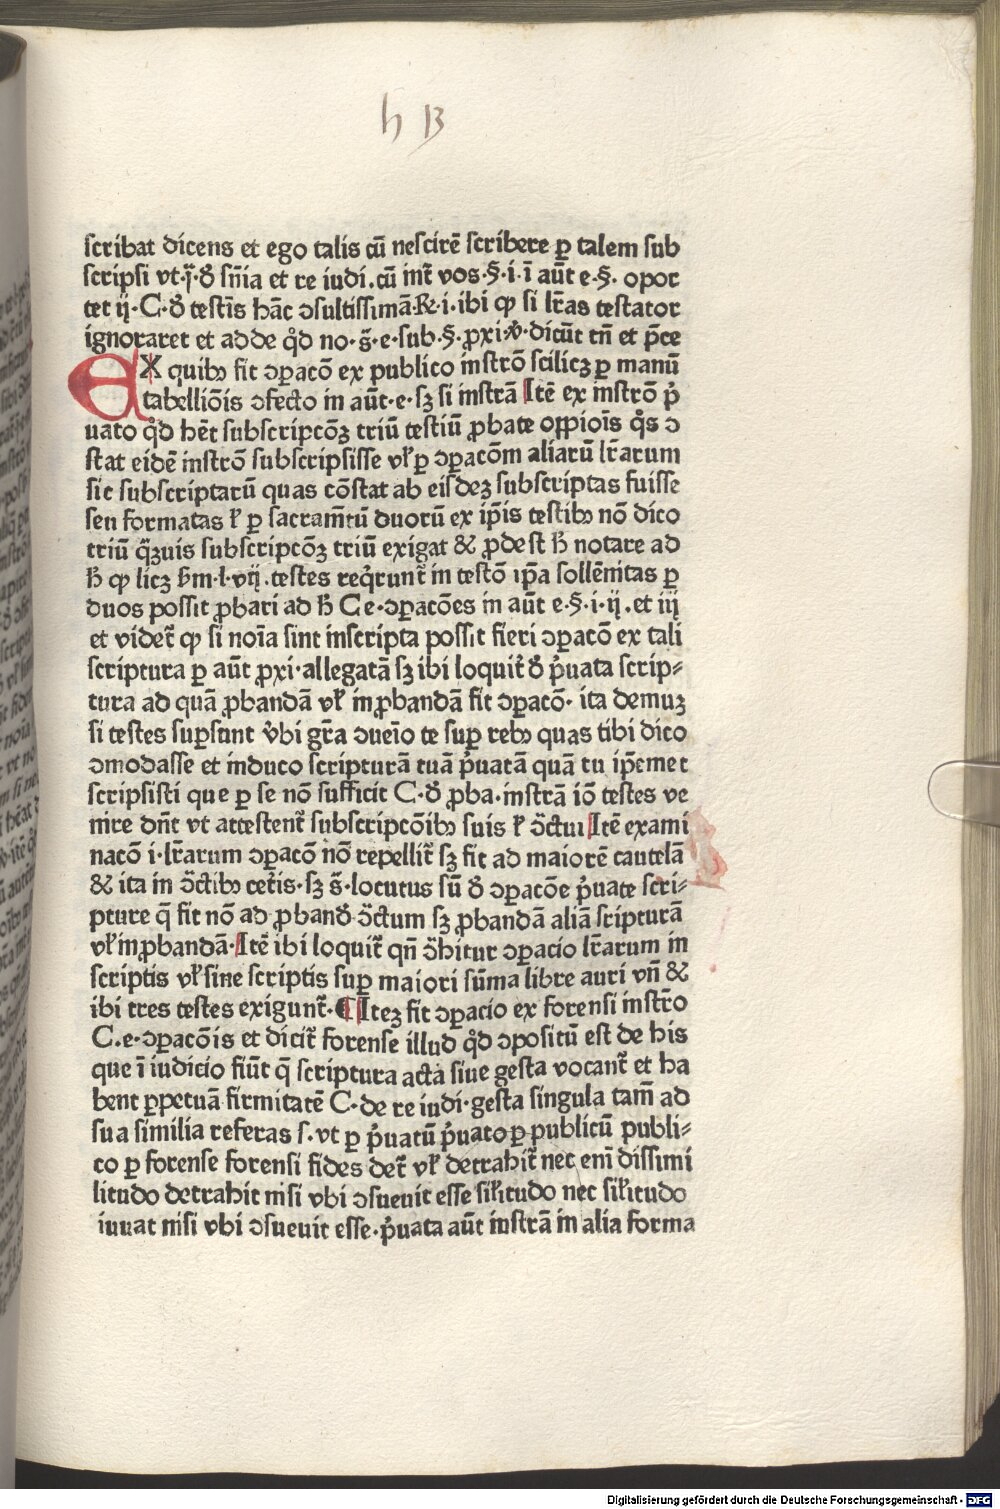 h B
scribat dicens et ego talis cū nescirē scribere ꝑ talem sub
scripsi vt.ff.ð sn̄ia et re iudi.cū int̄ vos.§.i.ī aūt e.§. opor
tet ij.C.ð testīs hāc ↄsultissimā.R.i.ibi ꝙ si lr̄as testator
ignoraret et adde qd̊ no.s̄.e.sub.§.ꝓxi.v̓.dicūt tn̄ et p̄ce
EX quibꝫ fit ↄꝑacō ex publico instrō scilicꝫ ꝑ manū
tabelliōis ↄfecto in aūt.e.sꝫ si instrā Itē ex instrō p̓
uato qd̊ hēt subscripcōꝫ triū testiū ꝓbate oppiōis qͦs ↄ
stat eidē instrō subscripsisse vl̓ ꝑ ↄꝑacōm aliarū lr̄arum
sic subscriptarū quas cōstat ab eisdeꝫ subscriptas fuisse
seu formatas ł ꝑ sacram̄tū duorū ex ip̄is testibꝫ nō dico
triū q̄ꝫuis subscripcōꝫ triū exigat & ꝓdest ħ notare ad
ħ ꝙ licꝫ ẜm.l.vij.testes req̓runt̄ in testō ip̄a sollēnitas ꝑ
duos possit ꝓbari ad ħ C e.ↄꝑacōes in aūt e.§.i.ij.et iij
et videt̄ ꝙ si noīa sint inscripta possit fieri ↄꝑacō ex tali
scriptura ꝑ aūt ꝓxi.allegatā sꝫ ibi loquit̄ ð p̓uata scrip⸗
tura ad quā ꝓbandā vl̓ inꝓbandā fit ↄꝑacō. ita demuꝫ
si testes suꝑsunt v̓bi gr̄a ↄueīo te suꝑ rebꝫ quas tibi dico
ↄmodasse et induco scripturā tuā p̓uatā quā tu ip̄emet
scripsisti que ꝑ se nō sufficit C.ð ꝓba.instrā iō testes ve
nire dn̄t vt attestent̄ subscripcōibꝫ suis ł ↄ̄ctui Itē exami
nacō i.lr̄arum ↄꝑacō nō repellit̄ sꝫ fit ad maiorē cautelā
& ita in ↄ̄ctibꝫ cet̄is.sꝫ s̄.locutus sū ð ↄꝑacōe p̓uate scri⸗
pture q̄ fit nō ad ꝓband̄ ↄ̄ctum sꝫ ꝓbandā aliā scripturā
vl̓ inꝓbandā.Itē ibi loquit̄ qn̄ ↄ̄hitur ↄꝑacio lr̄arum in
scriptis vl̓ sine scriptis suꝑ maiori sūma libre auri vn̄ &
ibi tres testes exigunt̄.¶ Iteꝫ fit ↄꝑacio ex forensi instrō
C.e.ↄꝑacōis et dicit̄ forense illud qd̊ ↄpositū est de his
que ī iudicio fiūt q̄ scriptura acta siue gesta vocant̄ et ha
bent ꝑpetuā firmitatē C.de re iudi.gesta singula tam̄ ad
sua similia referas s.vt ꝑ p̓uatū p̓uato ꝑ publicū publi⸗
co ꝑ forense forensi fides det̄ vl̓ detrahit̄ nec enī dissimi
litudo detrahit nisi vbi ↄsueuit esse sil̓itudo nec sil̓itudo
iuuat nisi vbi ↄsueuit esse.p̓uata aūt instrā in alia forma
Digitalisierung gefördert durch die Deutsche Forschungsgemeinschaft - DFG